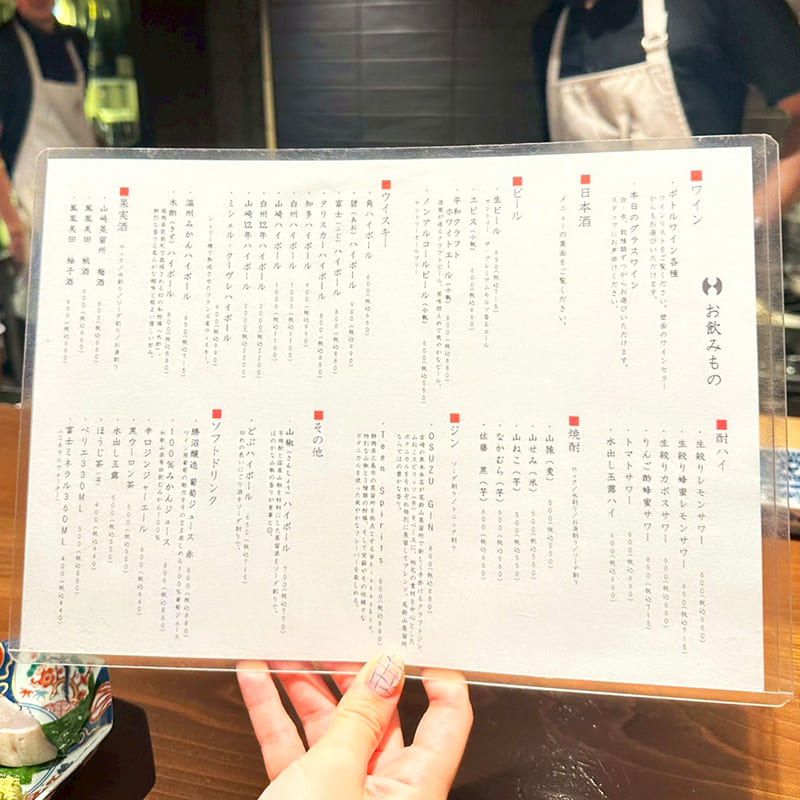 お飲みもの
■ワイン
・ボトルワイン各種
ワインリストをご覧ください。壁面のワインセラー
からもお選びいただけます。
・本日のグラスワイン
白・赤、数種類ずつからお選びいただけます。
スタッフにお声掛けください。
■日本酒
メニューの裏面をご覧ください。
■ビール
・生ビール 650(税込715)
サントリー ザ・プレミアムモルツ香るエール
・エビス(小瓶) 600(税込660)
・平和クラフト
ホワイトエール(小瓶) 800(税込880)
・ノンアルコールビール(小瓶) 500(税込550)
サントリーオールフリー
■ウイスキー
・角ハイボール 600(税込660)
・碧(あお)ハイボール 900(税込990)
・富士(ふじ)ハイボール 800(税込880)
・タリスカーハイボール 800(税込880)
・知多ハイボール 900(税込990)
・白州ハイボール 1000(税込1100)
・山崎ハイボール 1000(税込1100)
・白州12年ハイボール 2000(税込2200)
・山崎12年ハイボール 2000(税込2200)
・ミシェル・クーヴレハイボール
900(税込990)
シェリー樽で熟成させたフランス産ウィスキー。
・温州みかんハイボール 650(税込715)
・木酢(きず)ハイボール 800(税込880)
■果実酒
ロック/水割り/ソーダ割り/お湯割り
・山崎蒸留所 梅酒 800(税込880)
・鳳凰美田 桃酒 600(税込660)
・鳳凰美田 柚子酒 600(税込660)
■酎ハイ
・生絞りレモンサワー 600(税込660)
・生絞り蜂蜜レモンサワー 650(税込715)
・生絞りカボスサワー 600(税込660)
・りんご酢蜂蜜サワー 650(税込715)
・トマトサワー 600(税込660)
・水出し玉露ハイ 600(税込660)
■焼酎
ロック/水割り/お湯割り/ソーダ割り
・山猿(麦) 500(税込550)
・山せみ(米) 500(税込550)
・山ねこ(芋) 500(税込550)
・なかむら(芋) 600(税込660)
・佐藤 黒(芋) 600(税込660)
■ジン
ソーダ割り/トニック割り
・OSUZU GIN 800(税込880)
・Teen Spirits 800(税込880)
■その他
・山椒(さんしょう)ハイボール 700(税込770)
・どぶハイボール 650(税込715)
切れの良いにごり酒をソーダ割りで。
■ソフトドリンク
・勝沼醸造 葡萄ジュース 赤 800(税込880)
・100%みかんジュース 800(税込880)
・辛口ジンジャーエール 600(税込660)
・黒ウーロン茶 500(税込550)
・水出し玉露 500(税込550)
・ほうじ茶(温) 400(税込440)
・ペリエ330ML 500(税込550)
・富士ミネラル360ML 400(税込440)
(ミネラルウォーター)